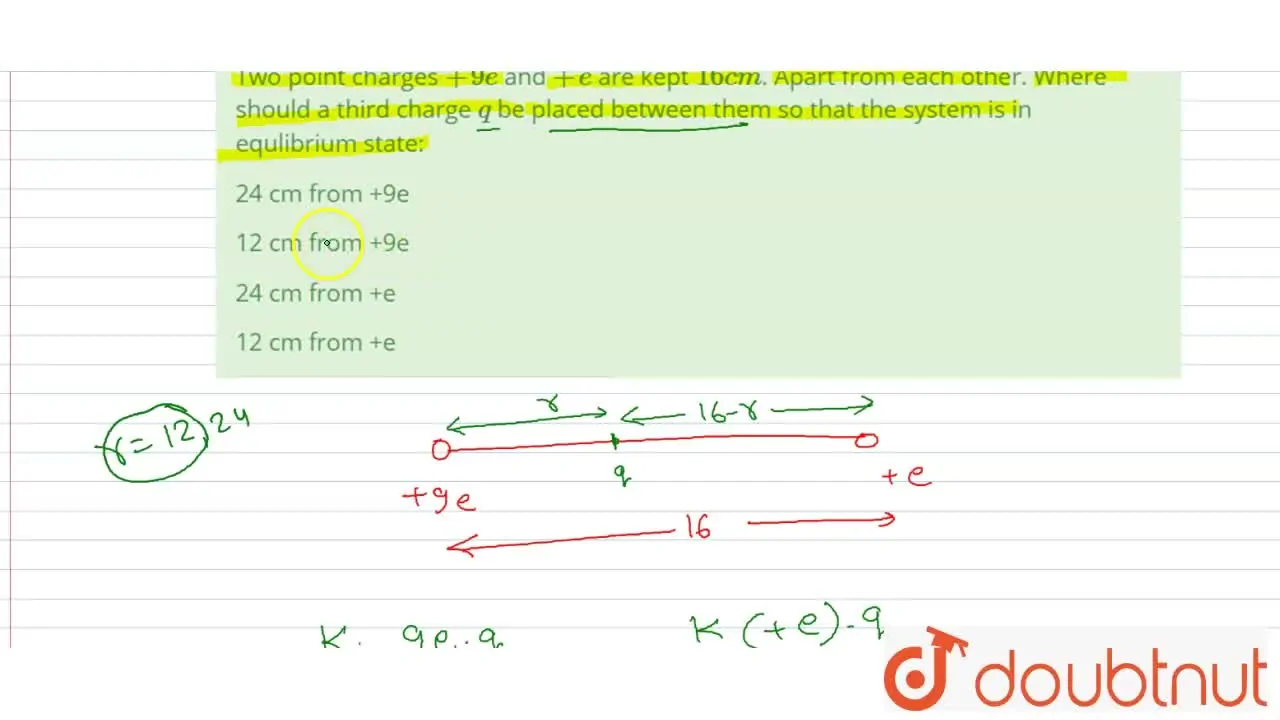 Two point charges +9e and +e are kept 16cm. Apart from each other. Where
should a third charge q be placed between them so that the system is in
equlibrium state:
24 cm from +9e
12 cm from +9e
24 cm from +e
12 cm from +e
r 16-r
r=12,24
q
+9e +e
16
K. 9e.q K (+e).q
doubtnut